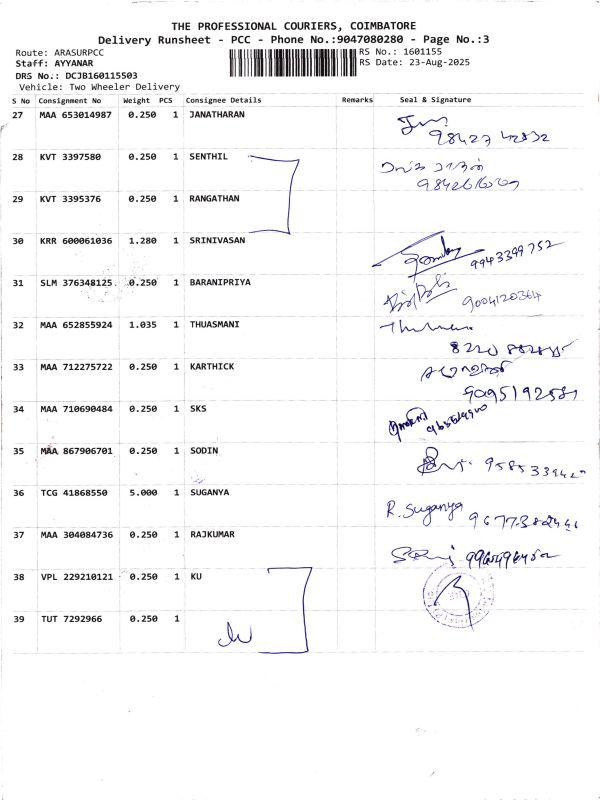 THE PROFESSIONAL COURIERS, COIMBATORE
Delivery Runsheet - PCC - Phone No.:9047080280 - Page No.:3
Route: ARASURPCC RS No.: 1601155
Staff: AYYANAR RS Date: 23-Aug-2025
DRS No.: DCJB160115503
Vehicle: Two Wheeler Delivery
S No Consignment No Weight PCS Consignee Details Remarks Seal & Signature
27 MAA 653014987 0.250 1 JANATHARAN
28 KVT 3397580 0.250 1 SENTHIL
29 KVT 3395376 0.250 1 RANGATHAN
30 KRR 600061036 1.280 1 SRINIVASAN
9943399752
31 SLM 376348125 0.250 1 BARANIPRIYA
9004120364
32 MAA 652855924 1.035 1 THUASMANI
33 MAA 712275722 0.250 1 KARTHICK
34 MAA 710690484 0.250 1 SKS
35 MAA 867906701 0.250 1 SODIN
36 TCG 41868550 5.000 1 SUGANYA R. Suganya
37 MAA 304084736 0.250 1 RAJKUMAR
38 VPL 229210121 0.250 1 KU
39 TUT 7292966 0.250 1